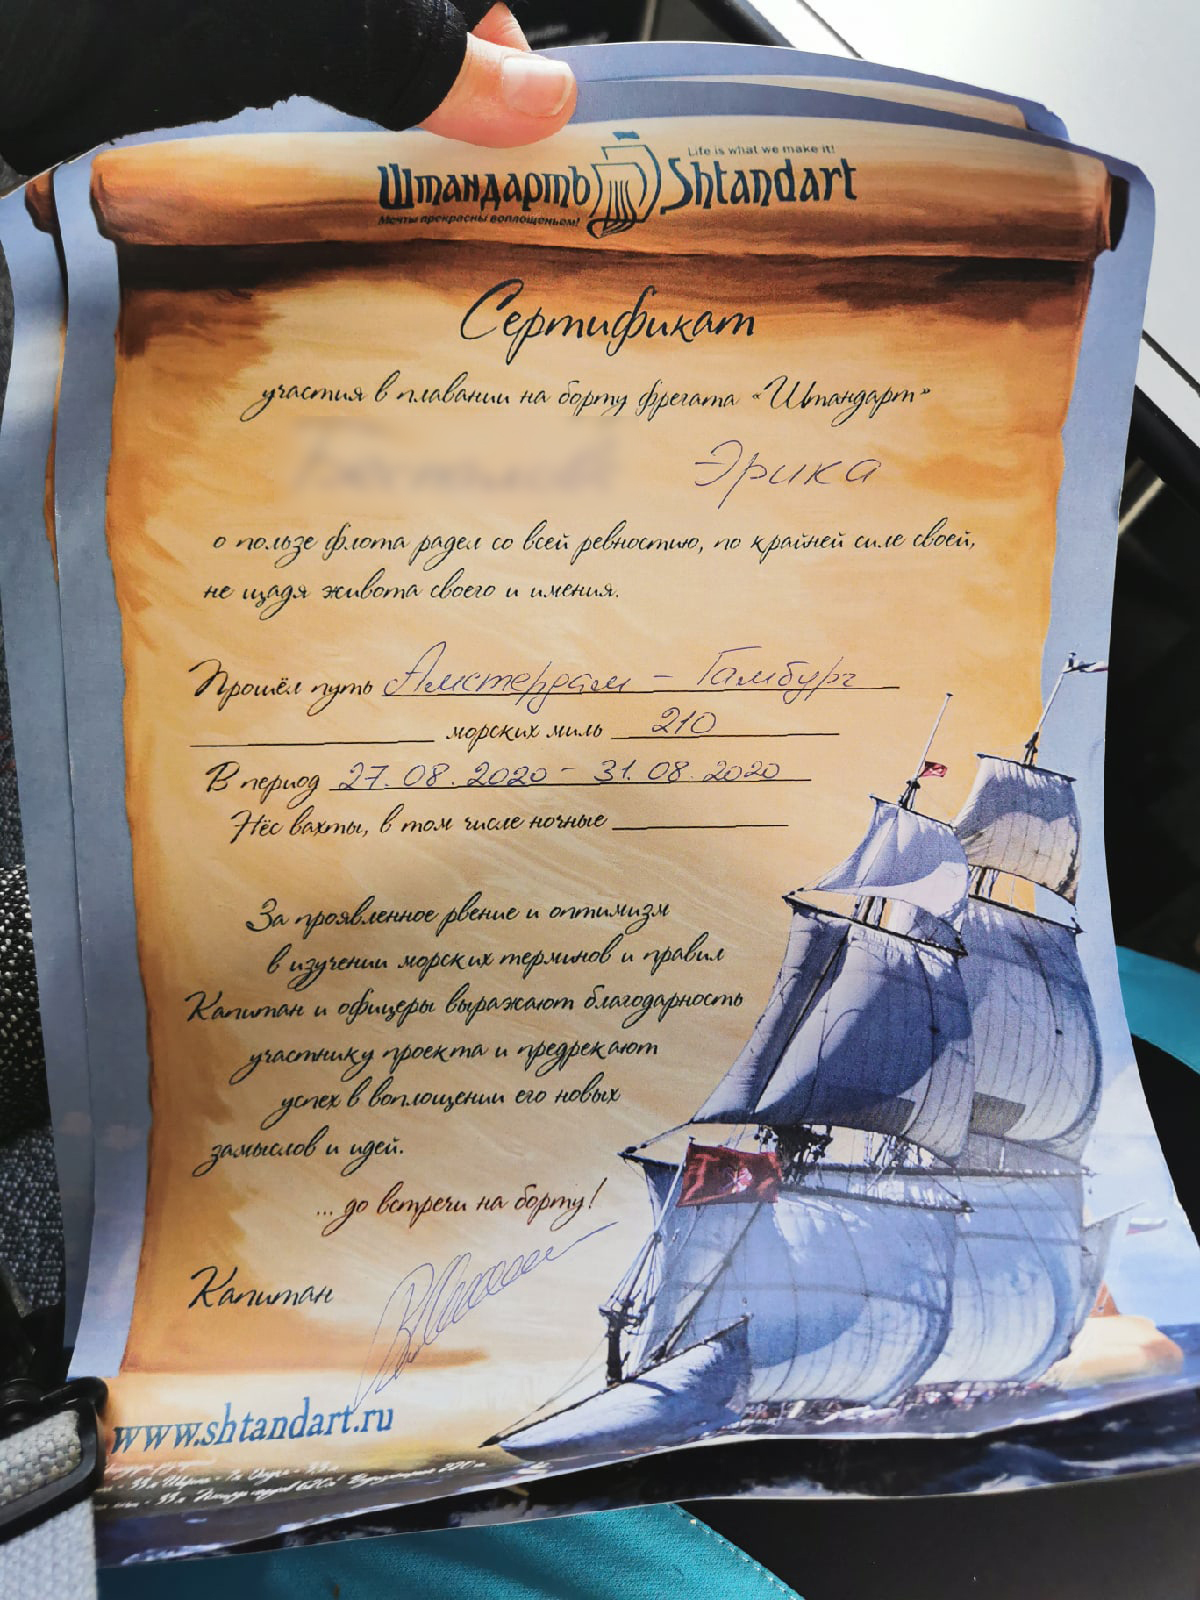 Life is what we make it!
Штандартъ Shtandart
Мечты прекрасны воплощеньем!
Сертификат
участия в плавании на борту фрегата «Штандарт»
Эрика
о пользе флота радел со всей ревностию, по крайней силе своей,
не щадя живота своего и имения.
Прошёл путь Амстердам - Гамбург
морских миль 210
В период 27.08.2020 - 31.08.2020
Нёс вахты, в том числе ночные
За проявленное рвение и оптимизм
в изучении морских терминов и правил
Капитан и офицеры выражают благодарность
участнику проекта и предрекают
успех в воплощении его новых
замыслов и идей.
... до встречи на борту!
Капитан
www.shtandart.ru